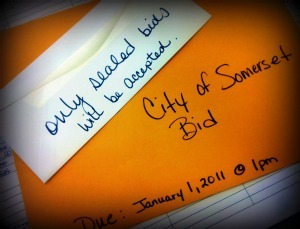 only sealed bids
will be accepted.
City of Somerset
Bid
Due: January 1, 2011 @ 1pm